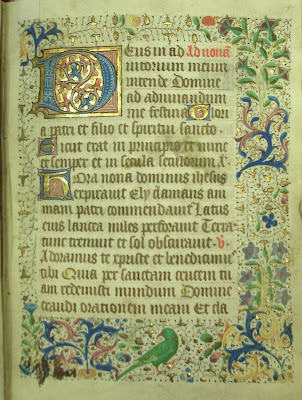 Deus in ad Ad nonã
iutorium meum
intende Domine
ad adiuuandum
me festina Glori
a patri et filio et spiritui sancto.
Sicut erat in principio et nunc
et semper et in secula seculorum A.
Hora nona dominus ihesus
expirauit Ely clamans ani
mam patri commendauit Latus
eius lancea miles perforauit Terra
tunc tremuit et sol obscurauit v̄
Adoramus te xpriste et benedicimus
tibi Quia per sanctam crucem tu
am redemisti mundum Domine
exaudi orationem meam Et cla